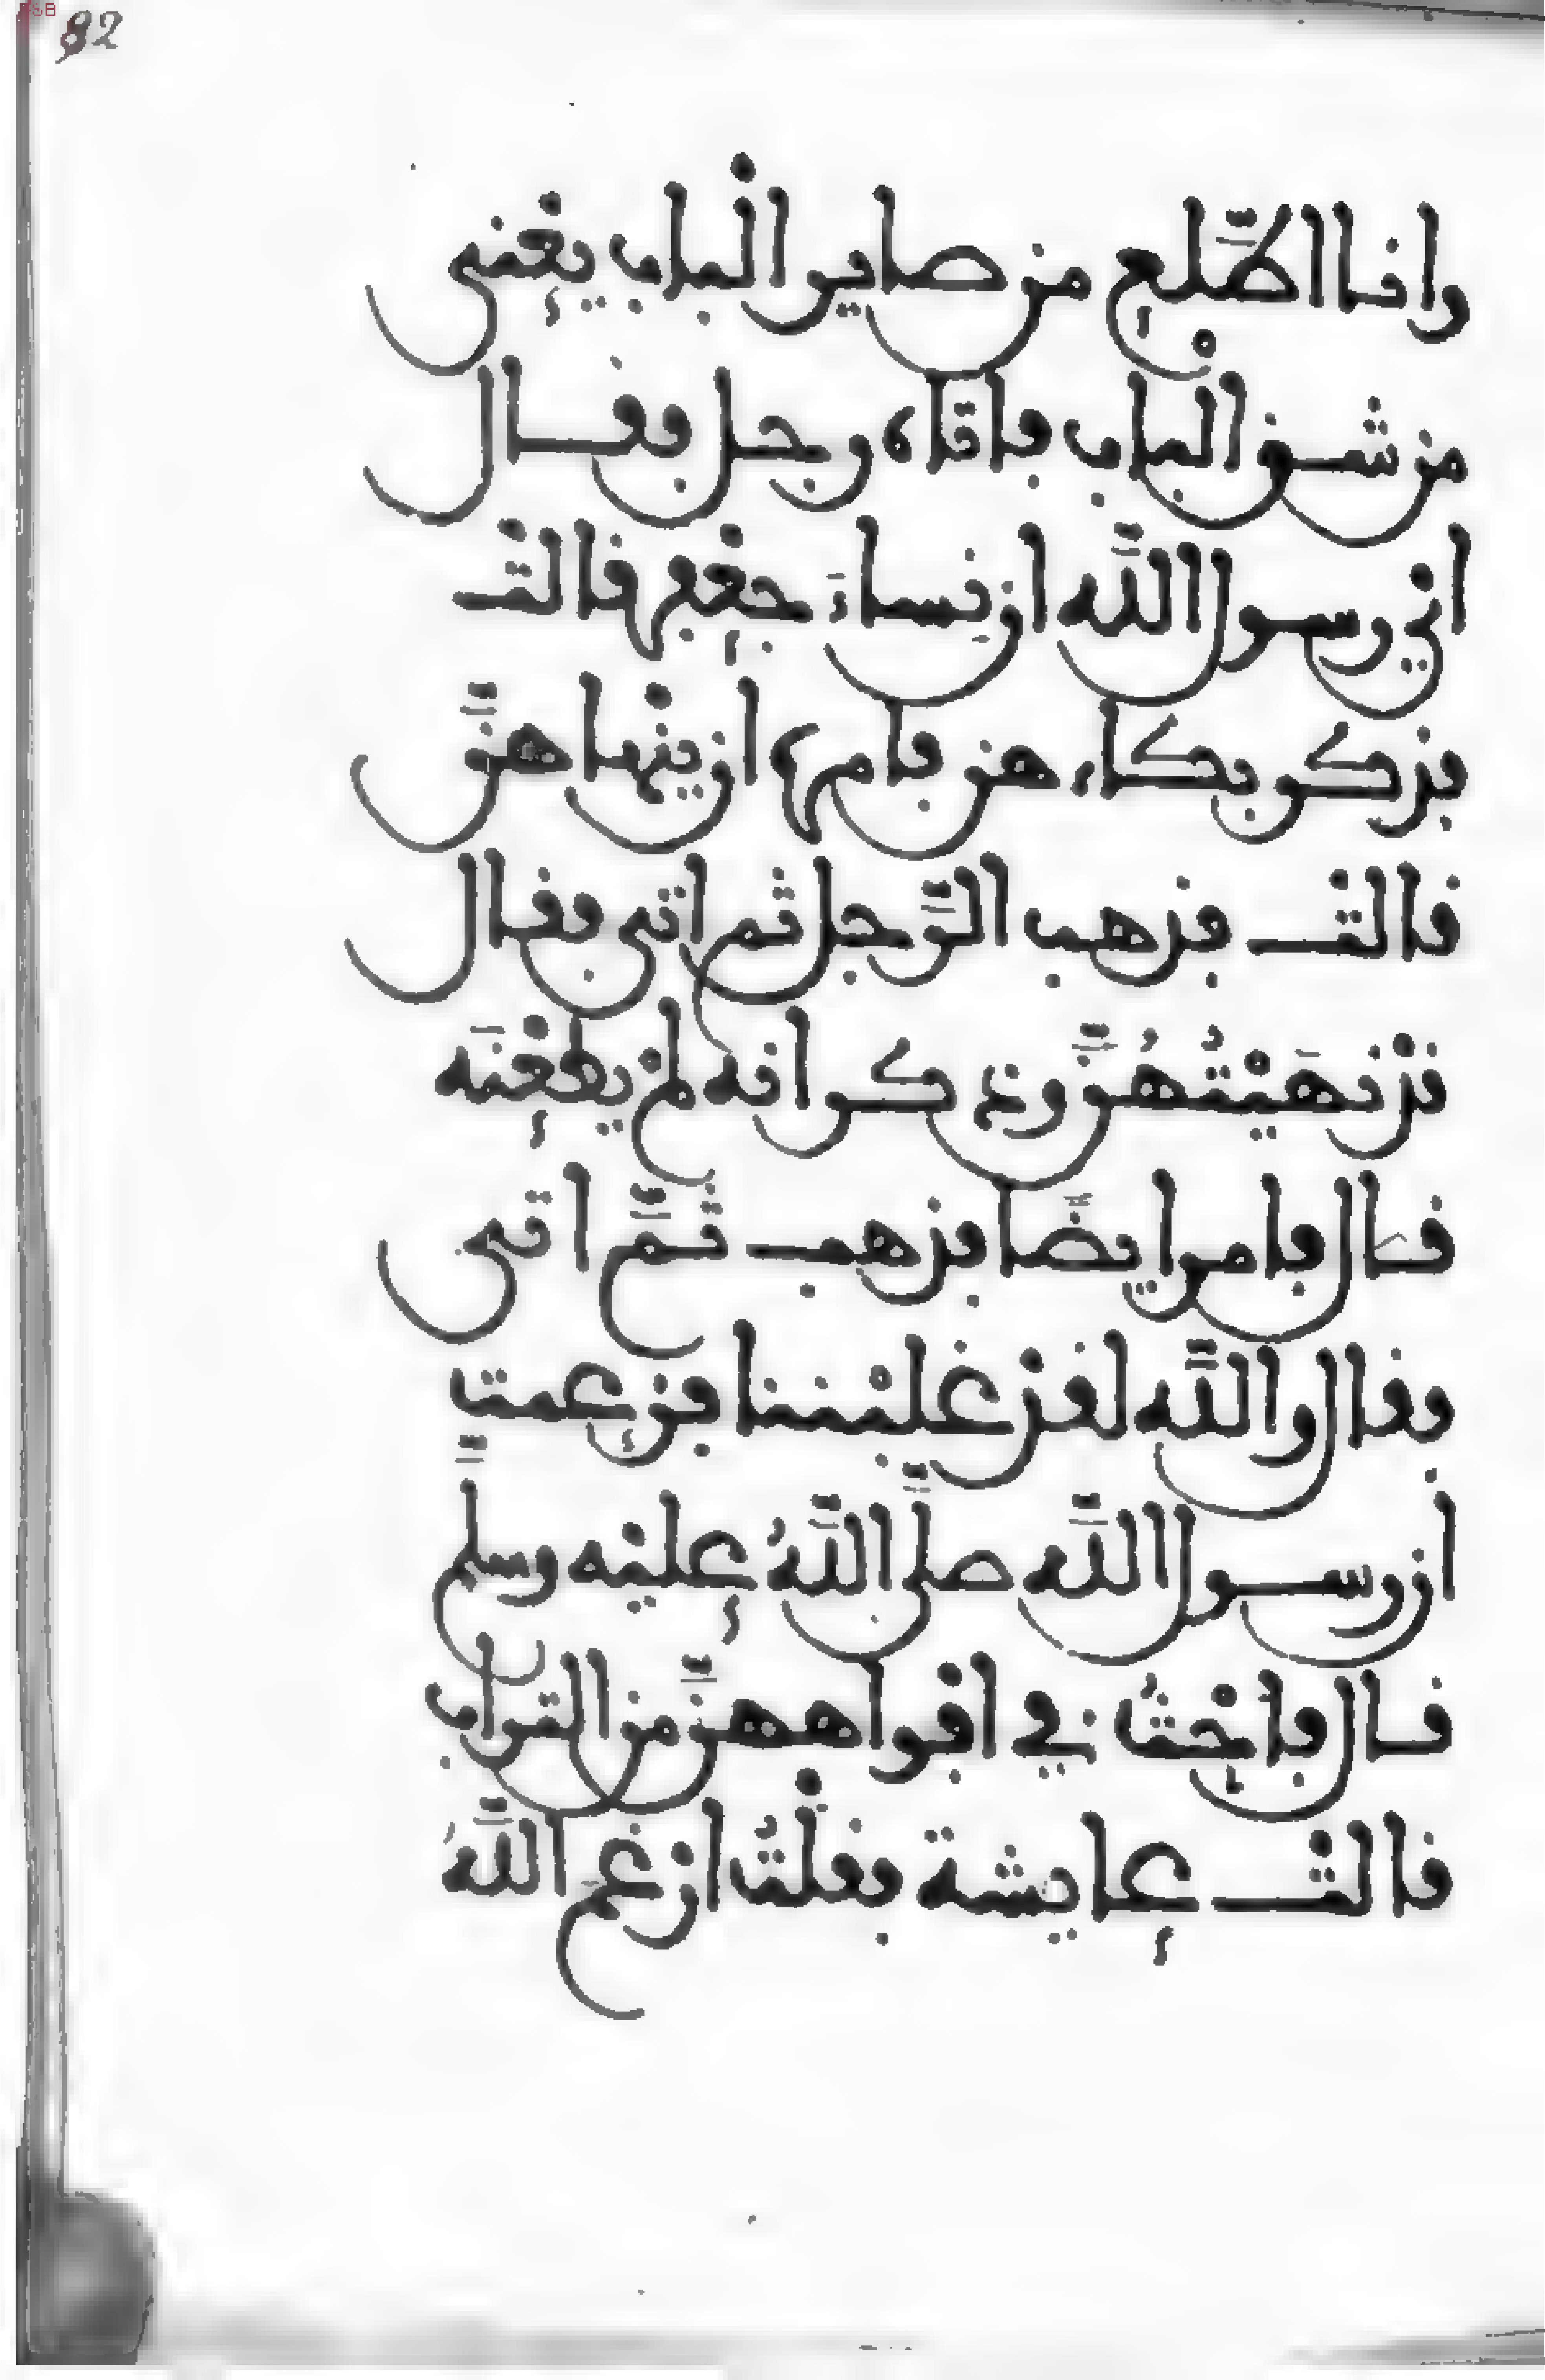 82
وانا اطّلع من صاير الْباب يعْني
من شق الْباب فاتاه رجل فقال
اني رسول اللّه ان نساءَ جعْفر قالتْ
فذكر بكاءهن فامره ان ينْهاهنّ
قالتْ فذهب الرّجل ثم اتى فقال
قدْ نَهَيْتُهُنّ وذكر انه لمْ يطعْنَه
قال فامر ايضًا فذهب ثمّ اتى
فقال واللّه لقد غلبْننا فزعمت
ان رسول اللّه صلّى اللّهُ عليْه وسلّم
قال فاحْثُ في افواههنّ من التراب
قالتْ عايشة فقلْتُ ارغم اللّهُ